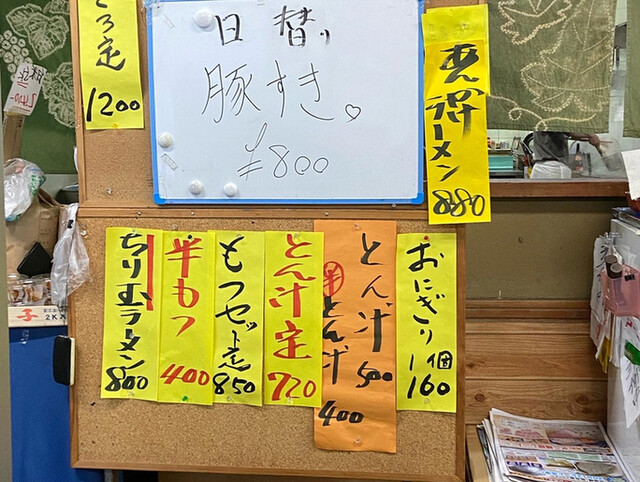 ころ定
1200
日替り
豚すき
¥800
あんかけ
ラーメン
880
ちり玉ラーメン
800
半もつ
400
もつセット
850
とん汁定
720
とん汁
500
半とん汁
400
おにぎり
1個
160
2K